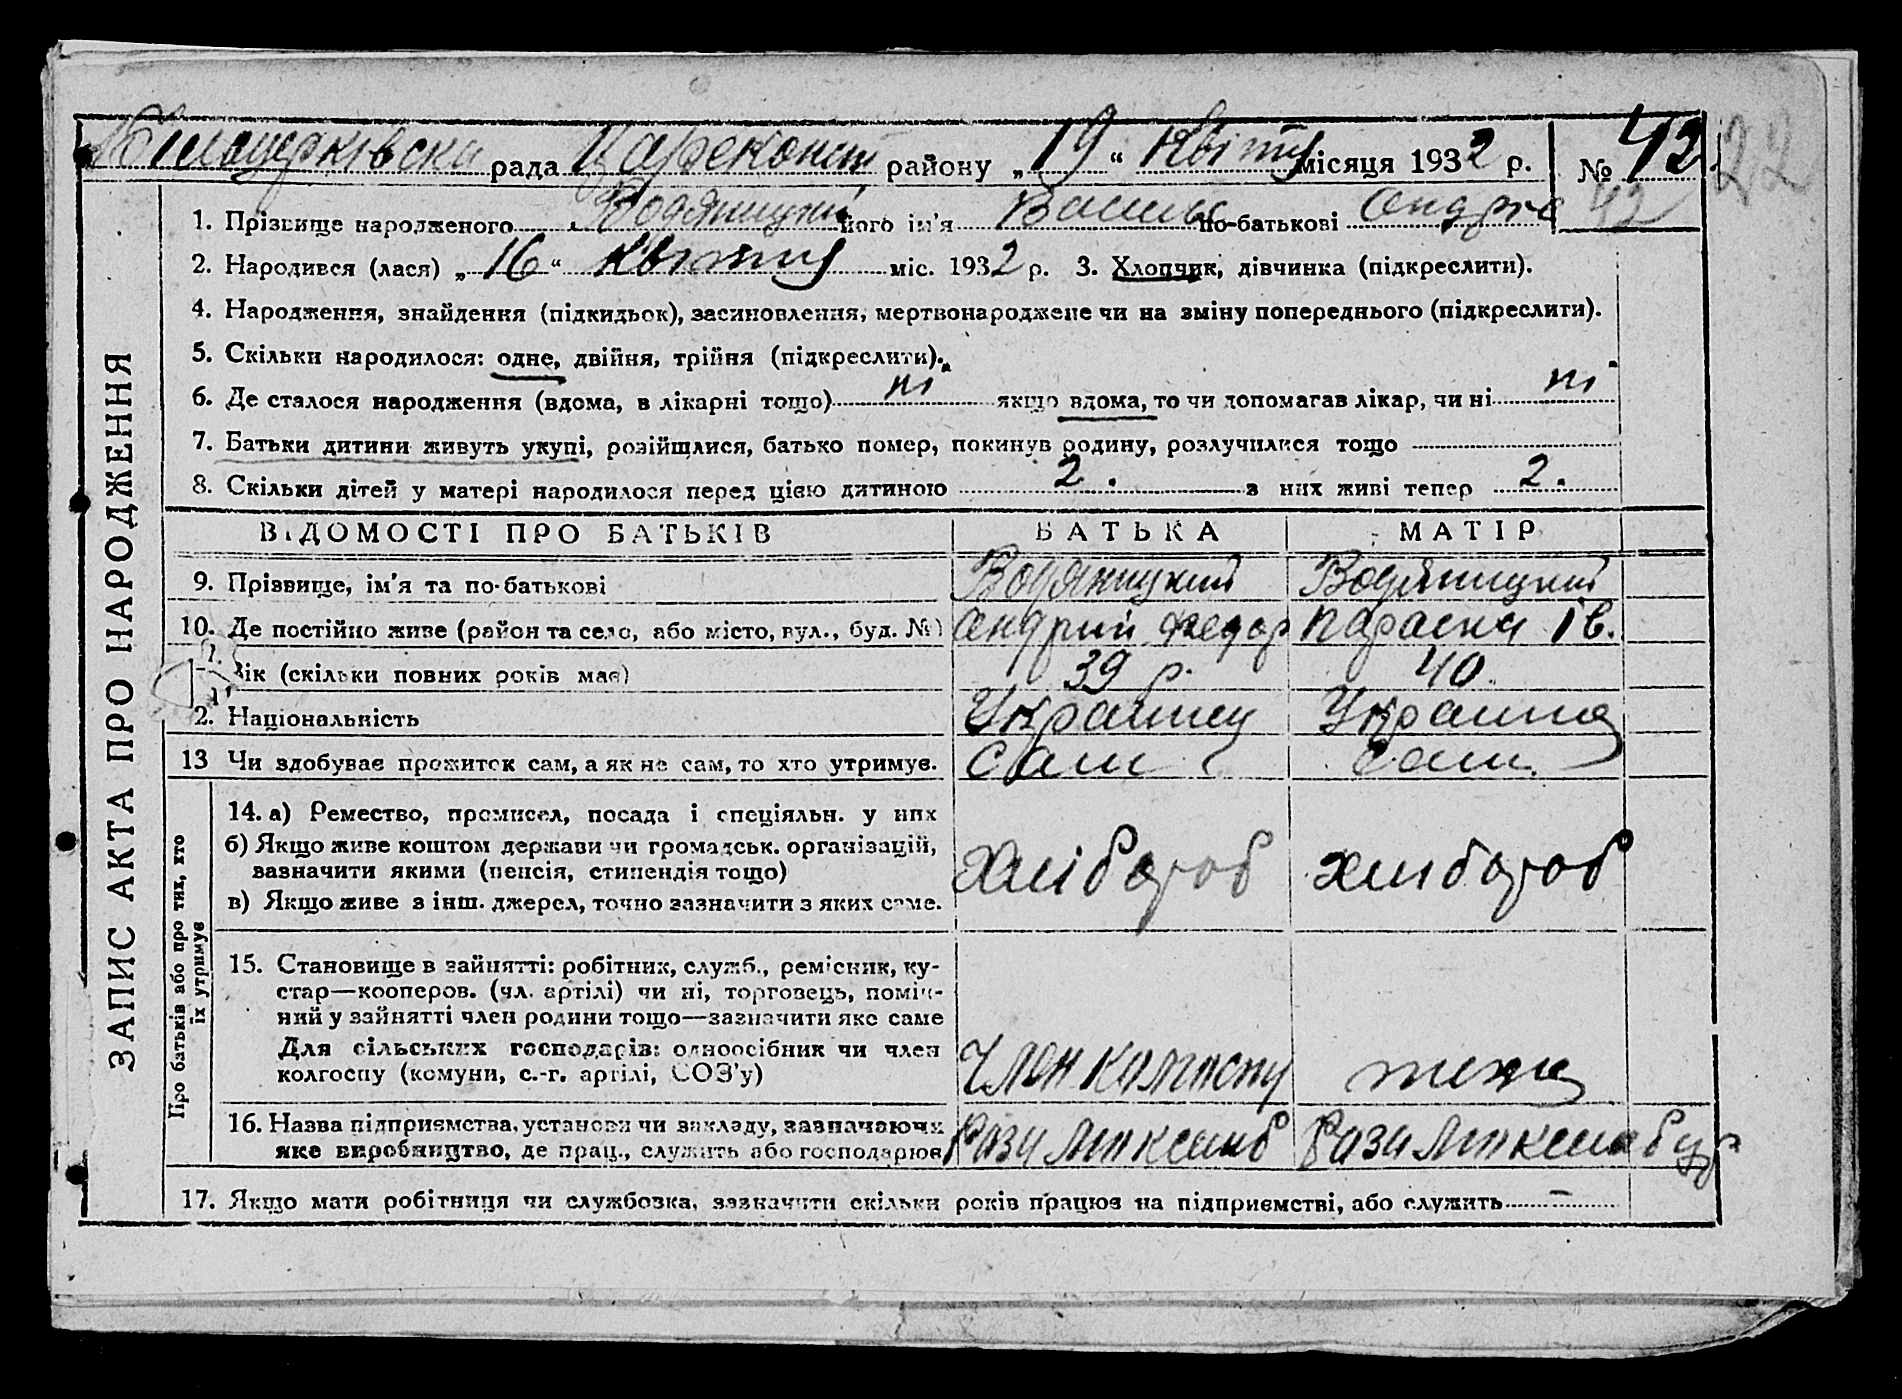 Білоцерківска рада Цареконст району „19“ Квітня місяця 1932 р. № 42 22
1. Прізвище народженого Водяницкий його ім'я Василь по-батькові Андрее 42
2. Народився (лася) „16“ Квітня міс. 1932 р. 3. Хлопчик, дівчинка (підкреслити).
4. Народження, знайдення (підкидьок), засиновлення, мертвонароджене чи на зміну попереднього (підкреслити).
5. Скільки народилося: одне, двійня, трійня (підкреслити).
6. Де сталося народження (вдома, в лікарні тощо) ні якщо вдома, то чи допомагав лікар, чи ні ні
7. Батьки дитини живуть укупі, розійшлися, батько помер, покинув родину, розлучилися тощо
8. Скільки дітей у матері народилося перед цією дитиною 2. з них живі тепер 2.
ЗАПИС АКТА ПРО НАРОДЖЕННЯ
ВІДОМОСТІ ПРО БАТЬКІВ БАТЬКА МАТІР
9. Прізвище, ім'я та по-батькові Водяницкий Водяницкий
10. Де постійно живе (район та село, або місто, вул., буд. №) Андрий Федор Параска Ів.
Вік (скільки повних років має) 39 р. 40
2. Національність Украинец Украинка
13 Чи здобуває прожиток сам, а як не сам, то хто утримує. Сам Сам.
Про батьків або про тих, хто
їх утримує
14. а) Ремество, промисел, посада і спеціяльн. у них
б) Якщо живе коштом держави чи громадськ. організацій,
зазначити якими (пенсія, стипендія тощо) хлібороб хлібороб
в) Якщо живе з інш. джерел, точно зазначити з яких саме.
15. Становище в зайнятті: робітник, служб., ремісник, ку-
стар—кооперов. (чл. артілі) чи ні, торговець, поміч-
ний у зайнятті член родини тощо—зазначити яке саме
Для сільських господарів: одноосібник чи член
колгоспу (комуни, с.-г. артілі, СОЗ'у) Член колгоспу
16. Назва підприємства, установи чи закладу, зазначаючи
яке виробництво, де прац., служить або господарює Рози Люксемб Рози Люксембур
17. Якщо мати робітниця чи службовка, зазначити скільки років працює на підприємстві, або служить –